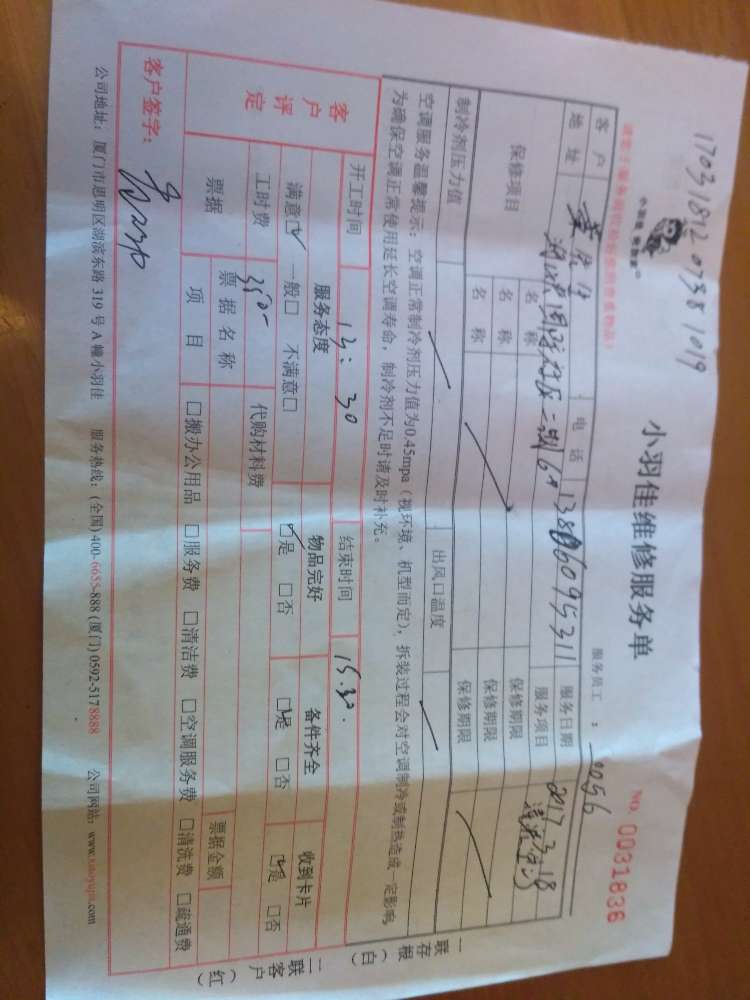 1703181207381019
小羽佳维修服务单
NO. 0031836
服务员工：0056
客户
电话 13806095311
服务日期 2017.3.18
地址
服务项目
保修项目
名称
保修期限
名称
保修期限
名称
保修期限
制冷剂压力值
出风口温度
空调服务温馨提示：空调正常制冷剂压力值为0.45mpa（视环境、机型而定），拆装过程会对空调制冷或制热造成一定影响，
为确保空调正常使用延长空调寿命，制冷剂不足时请及时补充。
开工时间 13:30
结束时间 15.30.
客户评定
服务态度
物品完好
备件齐全
收到卡片
满意☑ 一般□ 不满意□
☑是 □否
☑是 □否
☑是 □否
工时费 350-
代购材料费
票据
票据名称
票据金额
项目
□搬办公用品 □服务费 □清洁费 □空调服务费 □清洗费 □疏通费
客户签字：
公司地址：厦门市思明区湖滨东路 319 号 A 幢小羽佳 服务热线：(全国) 400-6655-888 (厦门) 0592-5178888 公司网站：www.xiaoyujia.com
一联存根（白）
二联客户（红）